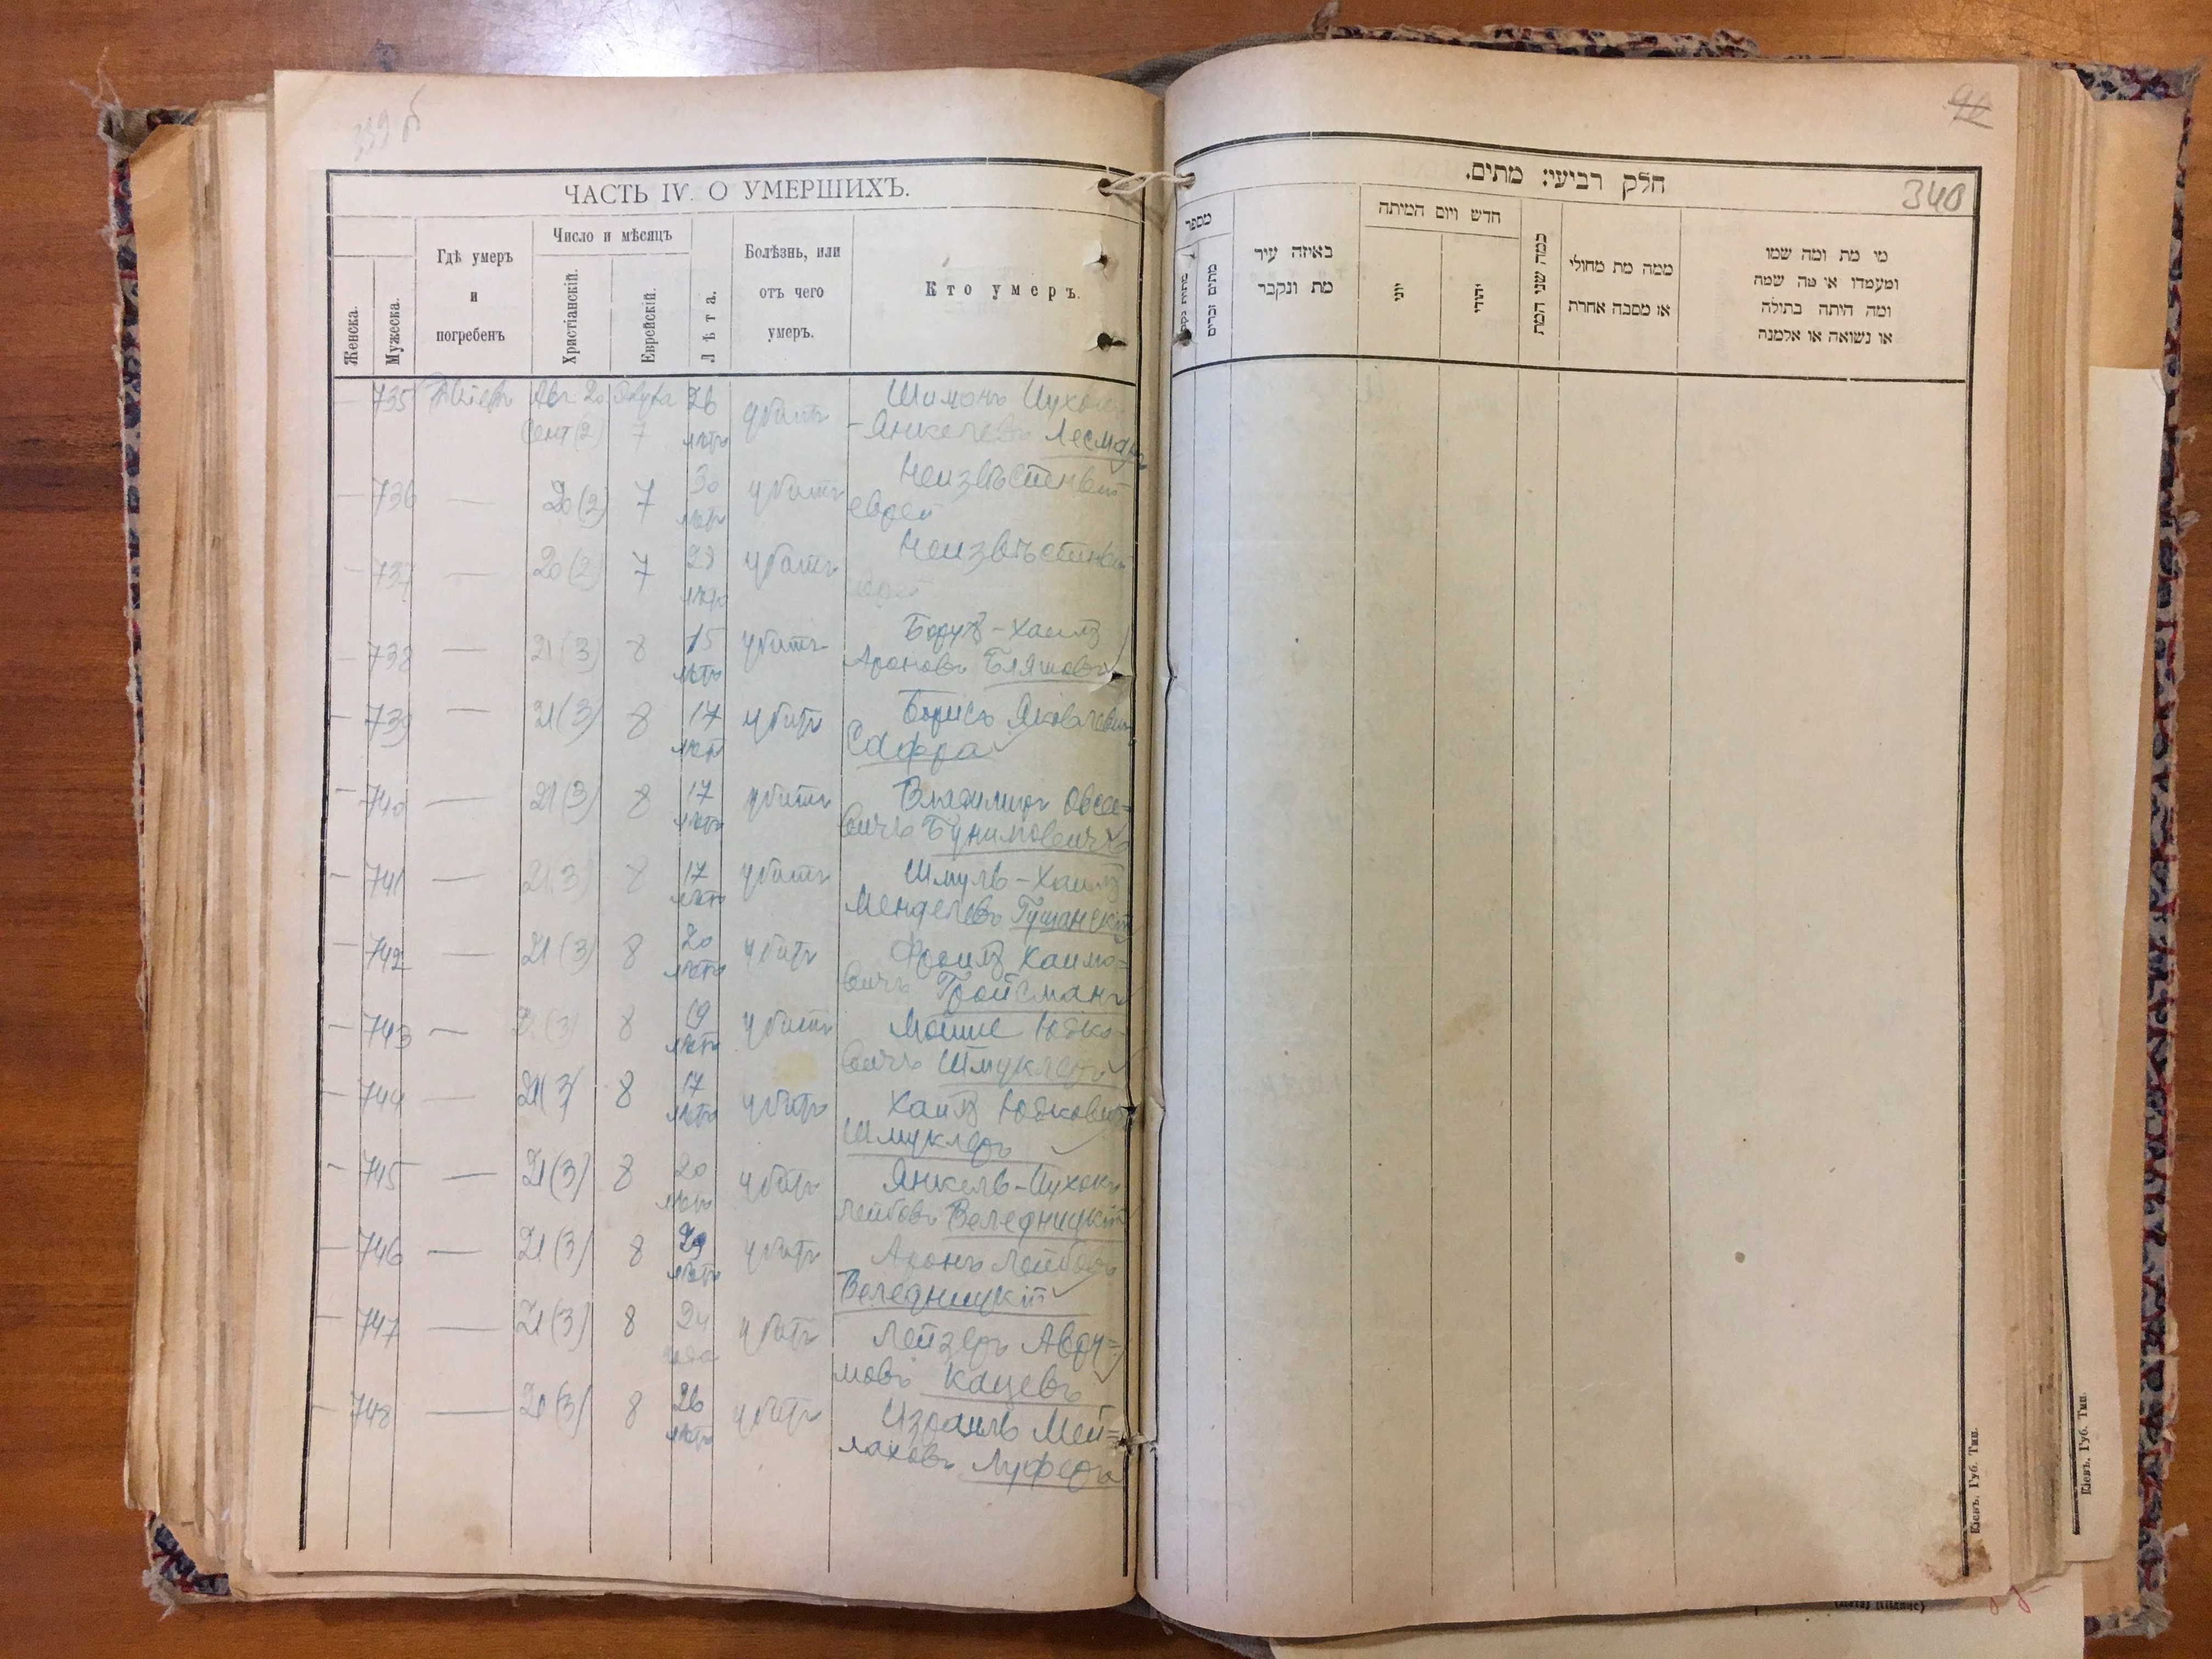 339 б
ЧАСТЬ IV. О УМЕРШИХЪ.
Женска.
Мужеска.
Гдѣ умеръ
и
погребенъ
Число и мѣсяцъ
Христіанскій.
Еврейскій.
Лѣта.
Болѣзнь, или
отъ чего
умеръ.
Кто умеръ.
— 735 Кіевъ Авг 20 26 убитъ Шимонъ
Сент (2) 7 лѣтъ -Янкелевъ
— 736 — 20 (2) 7 30 убитъ Неизвѣстный
лѣтъ еврей
— 737 — 20 (2) 7 убитъ Неизвѣстный
лѣтъ еврей
— 738 — 21 (3) 8 15 убитъ Борух-Хаимъ
лѣтъ Ароновъ Бляшовъ
— 739 — 21 (3) 8 17 убитъ Борисъ Яковлевич
лѣтъ Сафра
— 740 — 21 (3) 8 17 убитъ Владимиръ Овсее=
лѣтъ вичъ Бунимовичъ
— 741 — 21 (3) 8 17 убитъ Шмуль-Хаимъ
лѣтъ Менделевъ
— 742 — 21 (3) 8 20 убитъ Фроимъ Хаимо=
лѣтъ вичъ Тройсманъ
— 743 — (3) 8 19 убитъ Мошше Юдко-
лѣтъ вичъ Шмуклеръ
— 744 — 21 (3) 8 17 убитъ Хаимъ Юдкович
лѣтъ Шмуклеръ
— 745 — 21 (3) 8 20 убитъ Янкель-Ицхокъ
лѣтъ Лейбовъ Веледницкій
— 746 — 21 (3) 8 убитъ Аронъ Лейбовъ
лѣтъ Веледницкій
— 747 — 21 (3) 8 24 убитъ Лейзеръ Авру=
года мовъ Кацевъ
— 748 — (3) 8 26 убитъ Израиль Мей=
лѣтъ лаховъ Луферъ
340
חלק רביעי: מתים.
מספר
מתים זכרים
באיזה עיר
מת ונקבר
חדש ויום המיתה
יוני
יהודי
כמה שני המת
ממה מת מחולי
או מסבה אחרת
מי מת ומה שמו
ומעמדו או מה שמה
ומה היתה בתולה
או נשואה או אלמנה
Кіевъ. Губ. Тип.
Кіевъ. Губ. Тип.